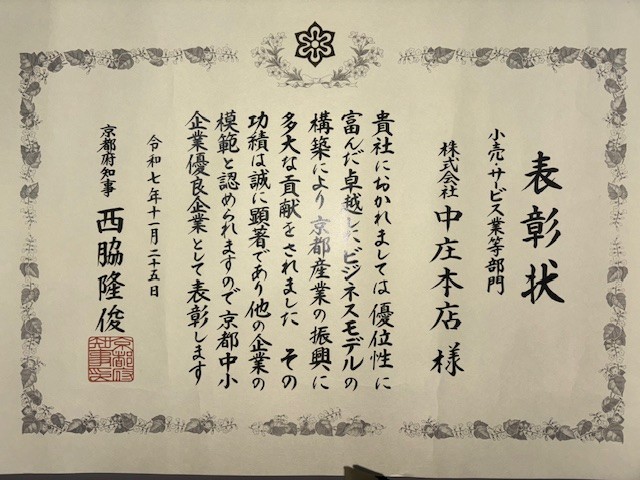 表彰状
小売・サービス業等部門
株式会社 中庄本店 様
貴社におかれましては優位性に
富んだ卓越したビジネスモデルの
構築により京都産業の振興に
多大な貢献をされました その
功績は誠に顕著であり他の企業の
模範と認められますので京都中小
企業優良企業として表彰します
令和七年十一月二十五日
京都府知事 西脇隆俊
京都府
知事印